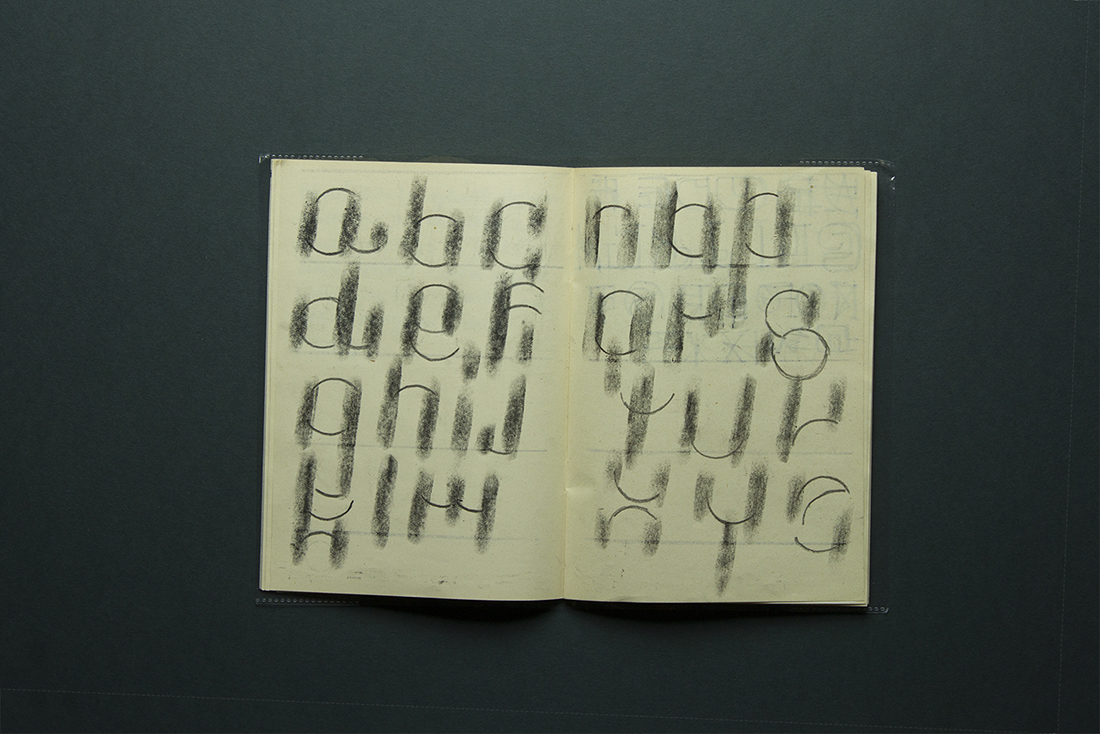 a b c
d e f
g h i j
k l m
n o p
q r s
t u v
x y z